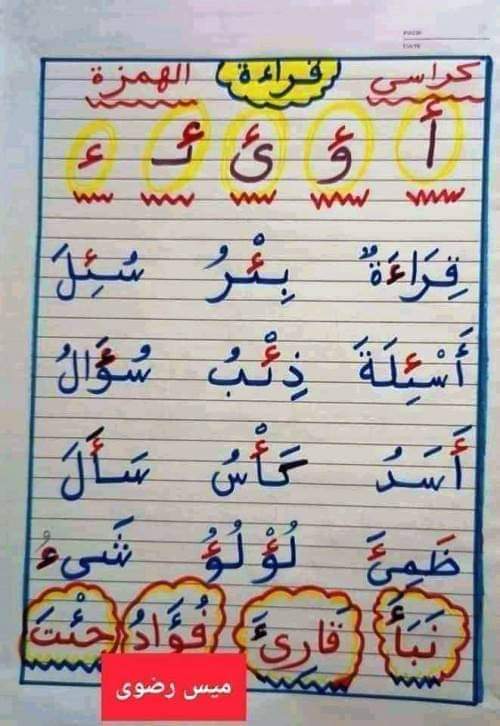 كراسى قراءة الهمزة
أ ؤ ئ ئـ ء
قِرَاءَةٌ بِئْرُ سُئِلَ
أَسْئِلَةَ ذِئْبُ سُؤَالُ
أَسَدُ كَأْسُ سَأَلَ
ظَمِئَ لُؤْلُؤُ شَىءُ
نَبَأَ قَارِئَ فُؤَادُ جئْتَ
ميس رضوى